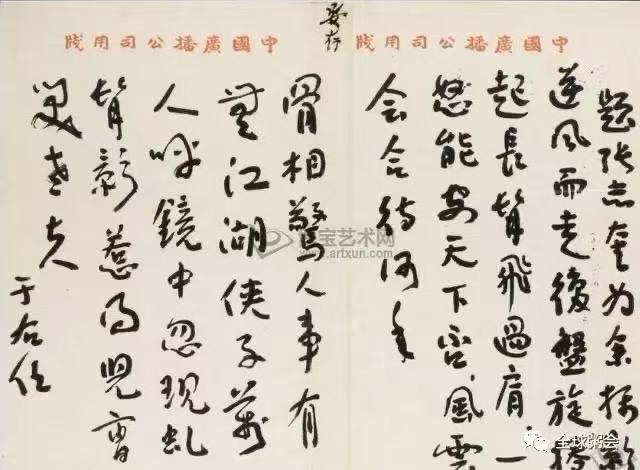 中國廣播公司用牋
中國廣播公司用牋
要存
題張志奎为余攝影
逆风而走復盤旋
起長髯飛過肩一
怒能安天下否風雲
会合待何年
骨相驚人事有
無江湖俠子萬
人呼鏡中忽現虬
髯影惹得兒曹
笑老夫
于右任
宝艺术网
www.artxun.com
全球粥会